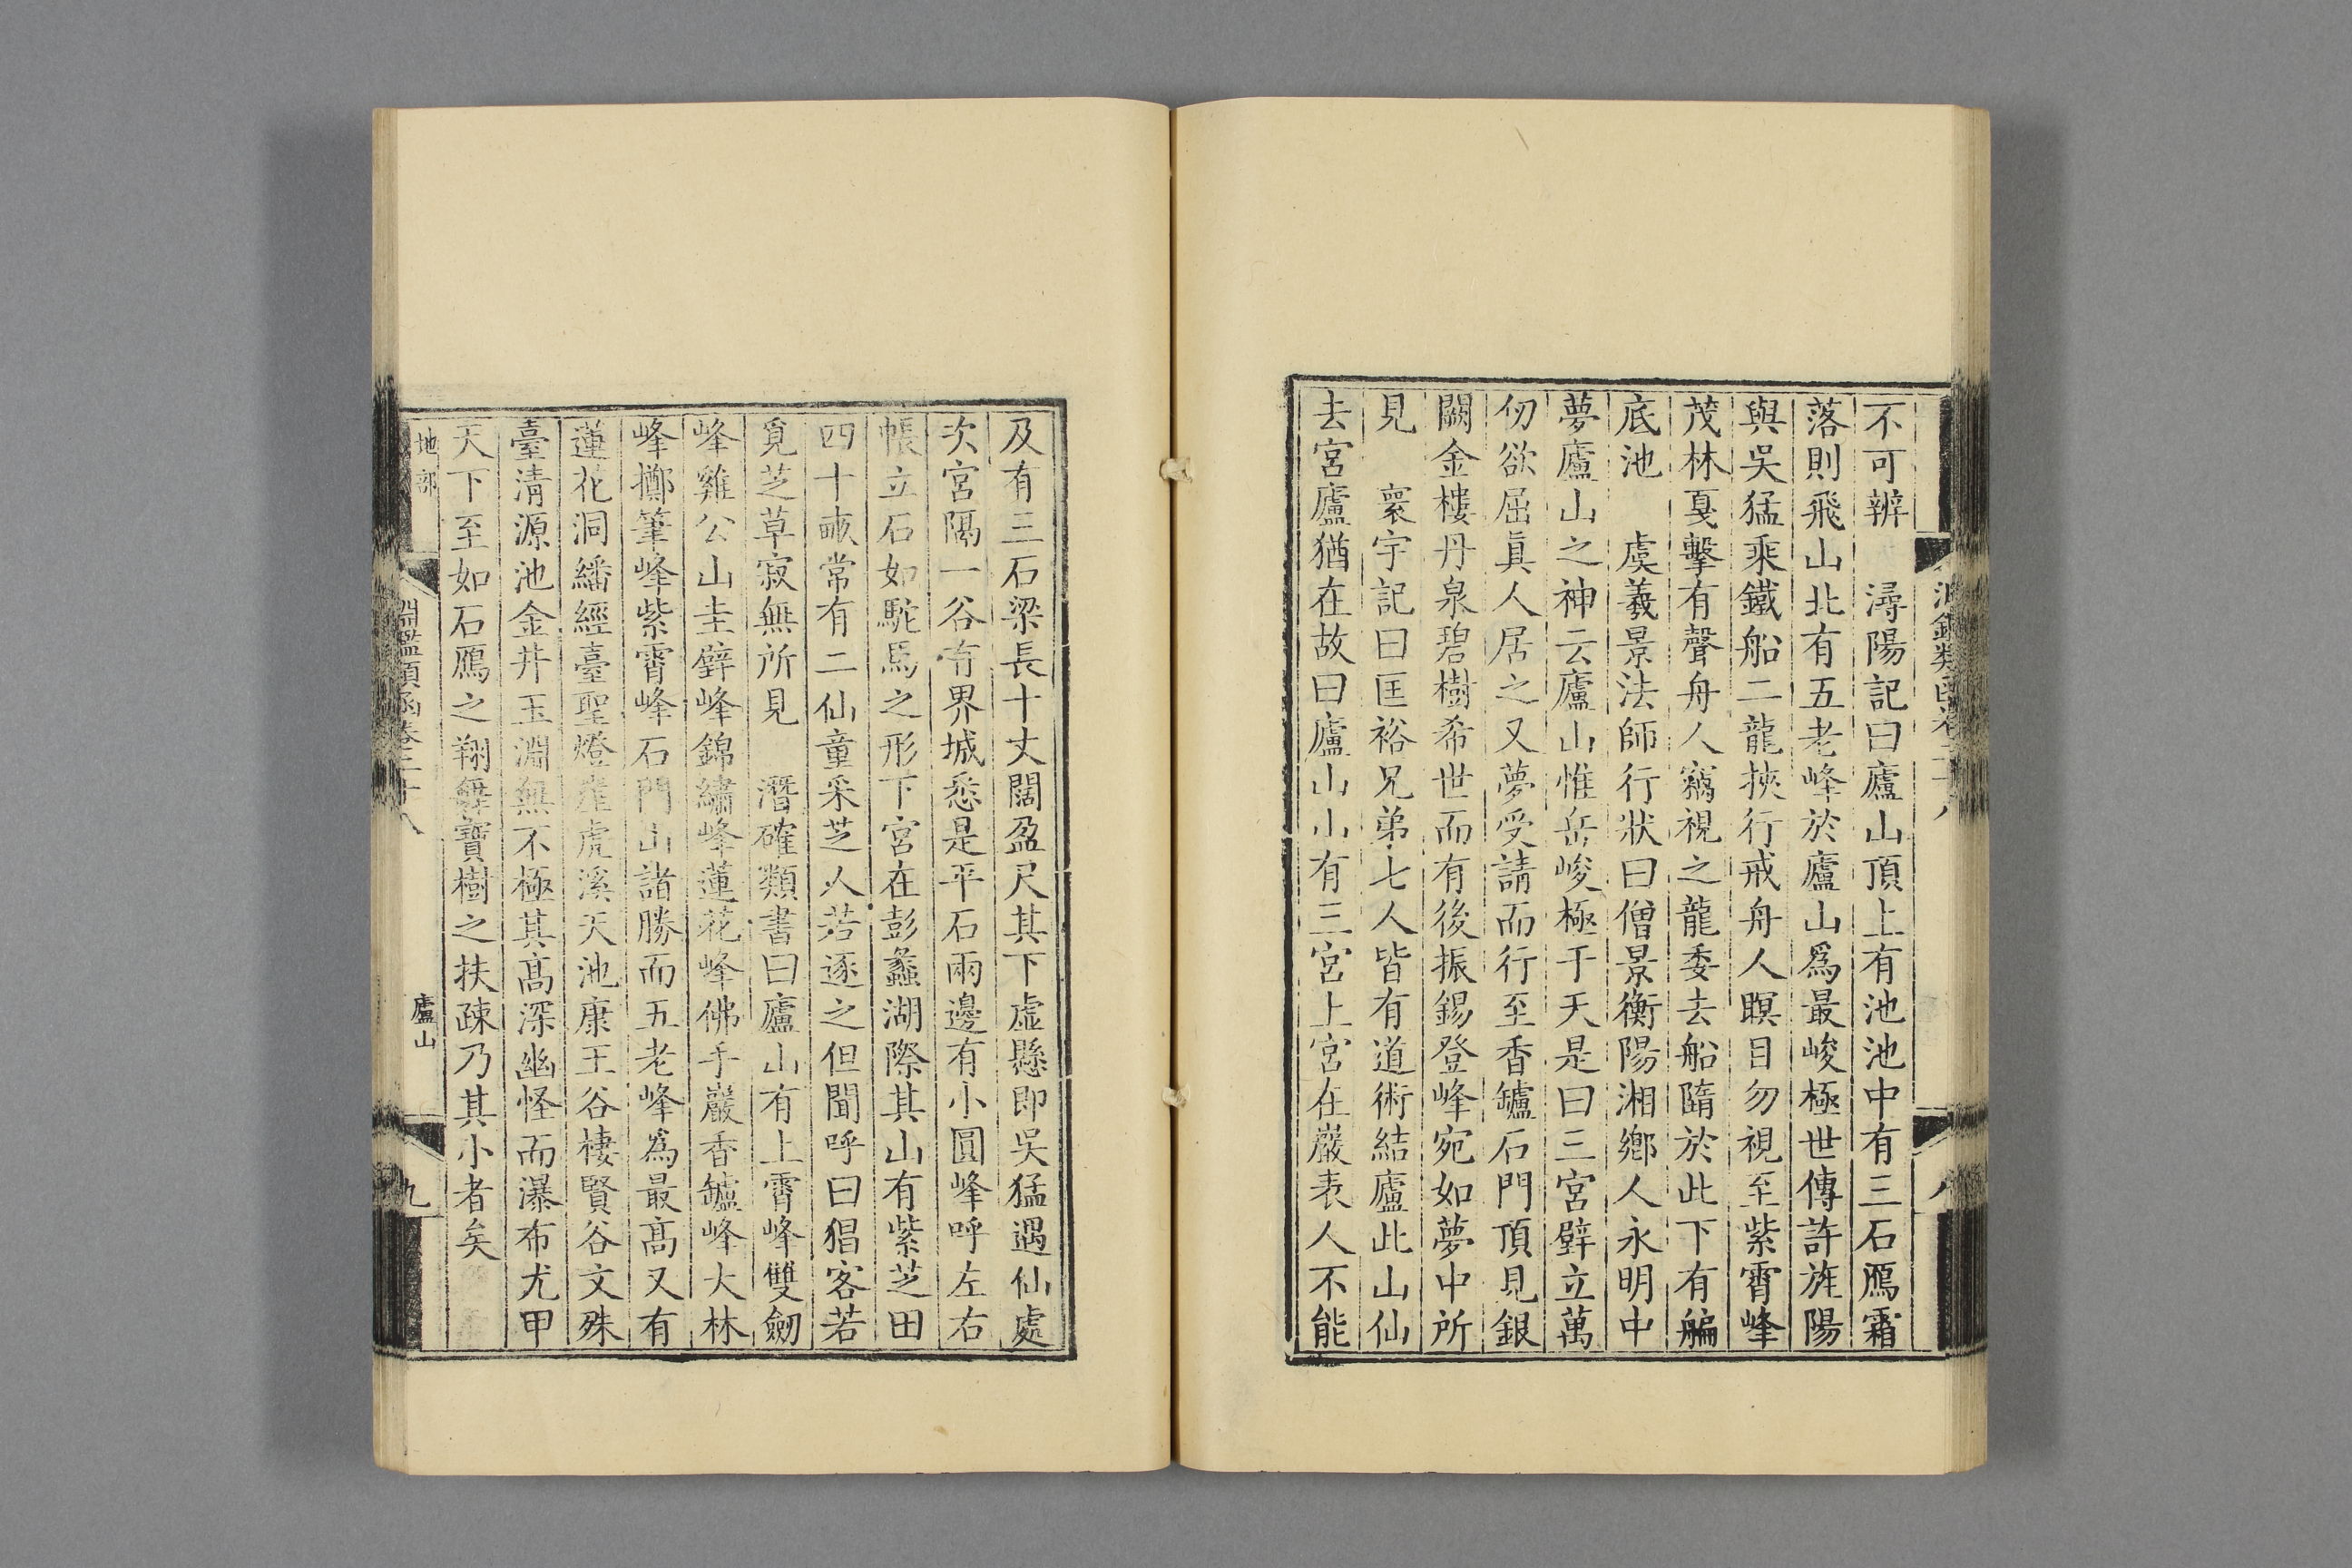 不可辨　潯陽記曰廬山頂上有池池中有三石鴈霜
落則飛山北有五老峰於廬山爲最峻極世傳許旌陽
與吳猛乘鐵船二龍挾行戒舟人瞑目勿視至紫霄峰
茂林戛擊有聲舟人竊視之龍委去船隨於此下有艑
底池　虞羲景法師行狀曰僧景衡陽湘鄉人永明中
夢廬山之神云廬山惟岳峻極于天是曰三宮壁立萬
仞欲屈眞人居之又夢受請而行至香鑪石門頂見銀
闕金樓丹泉碧樹希世而有後振錫登峰宛如夢中所
見　寰宇記曰匡裕兄弟七人皆有道術結廬此山仙
去宮廬猶在故曰廬山山有三宮上宮在巖表人不能
及有三石梁長十丈闊盈尺其下虛懸即吳猛遇仙處
次宮隅一谷有界城悉是平石兩邊有小圓峰呼左右
帳立石如駝馬之形下宮在彭蠡湖際其山有紫芝田
四十畝常有二仙童采芝人若逐之但聞呼曰猖客若
覓芝草寂無所見　潛確類書曰廬山有上霄峰雙劒
峰雞公山圭璧峰錦繡峰蓮花峰佛手巖香鑪峰大林
峰擲筆峰紫霄峰石門山諸勝而五老峰爲最高又有
蓮花洞繙經臺聖燈崖虎溪天池康王谷棲賢谷文殊
臺清源池金井玉淵無不極其高深幽怪而瀑布尤甲
天下至如石鴈之翔舞寶樹之扶疎乃其小者矣
地部
淵鑑類函卷二十八
廬山
九